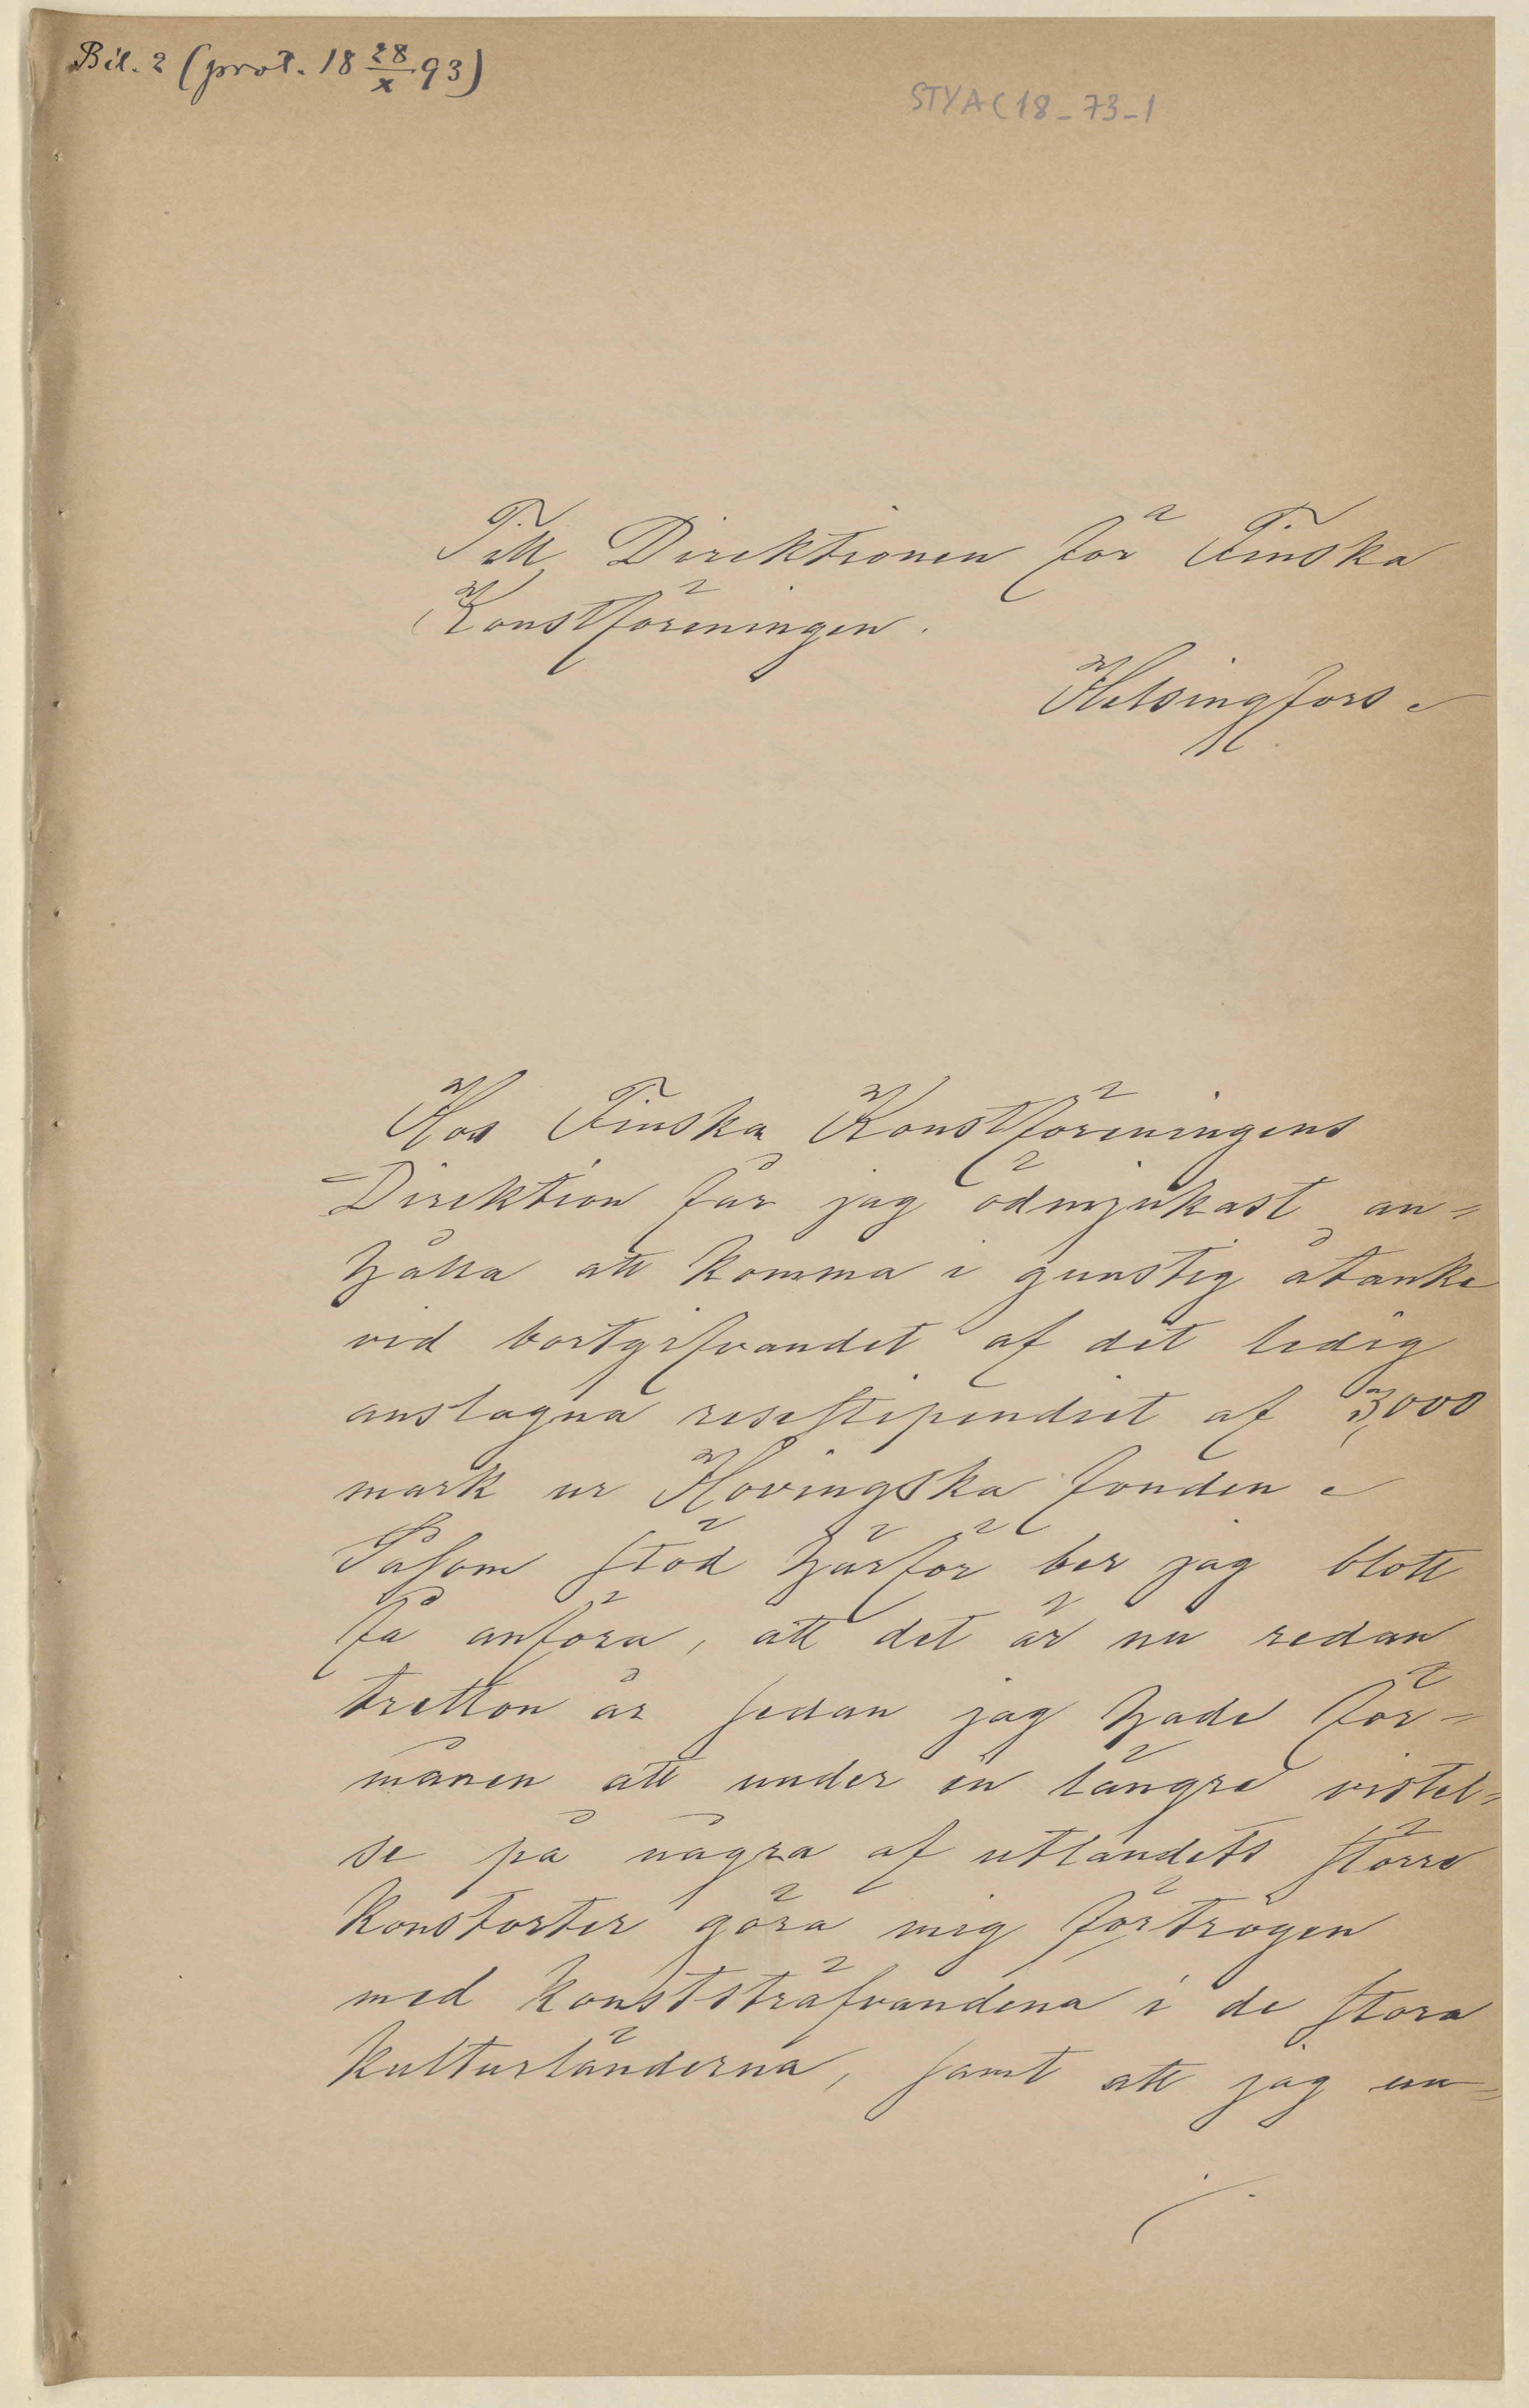 Bil. 2 (prot. 18 28/X 93)
STYA C 18_73_1
Till Direktionen för Finska
Konstföreningen.
Helsingfors.
Hos Finska Konstföreningens
Direktion får jag ödmjukast an=
hålla att komma i gunstig åtanke
vid bortgifvandet af det ledig
anslagna resestipendiet af 3,000
mark ur Hovingska fonden.
Såsom stöd härför ber jag blott
få anföra, att det är nu redan
tretton år sedan jag hade för=
månen att under en längre vistel=
se på några af utlandets större
konstorter göra mig förtrogen
med konststräfvandena i de stora
kulturländerna, samt att jag un=
./.